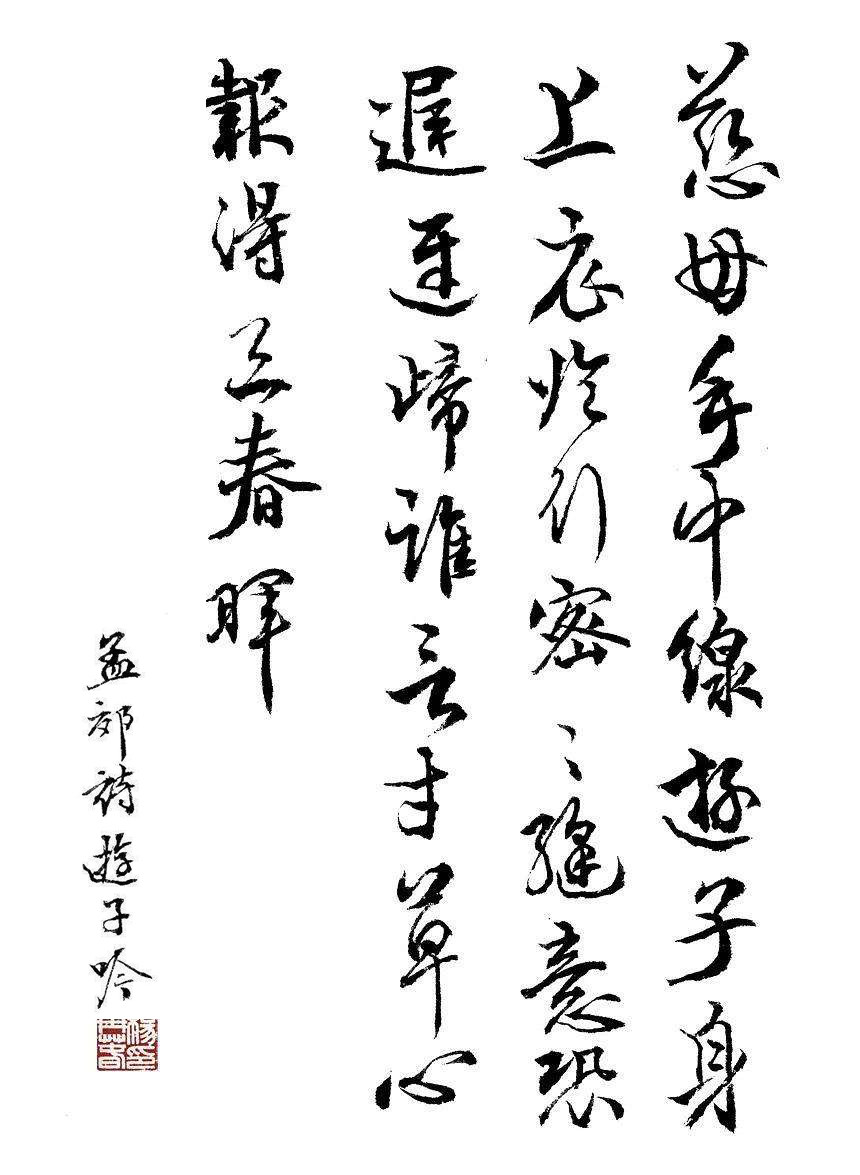 慈母手中線遊子身
上衣臨行密〻縫意恐
遲遲歸誰言寸草心
報得三春暉
孟郊詩遊子吟